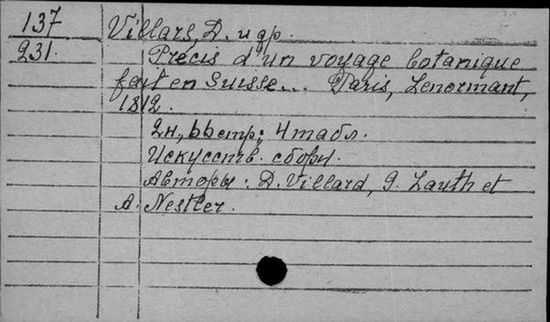 137
231.
Villars, D. и др.
Précis d'un voyage botanique
fait en Suisse... Paris, Lenormant,
1812.
2н., 66стр; 4табл.
Искусств. сборн.
Авторы: D. Villard, G. Lauth et
A. Nestler.